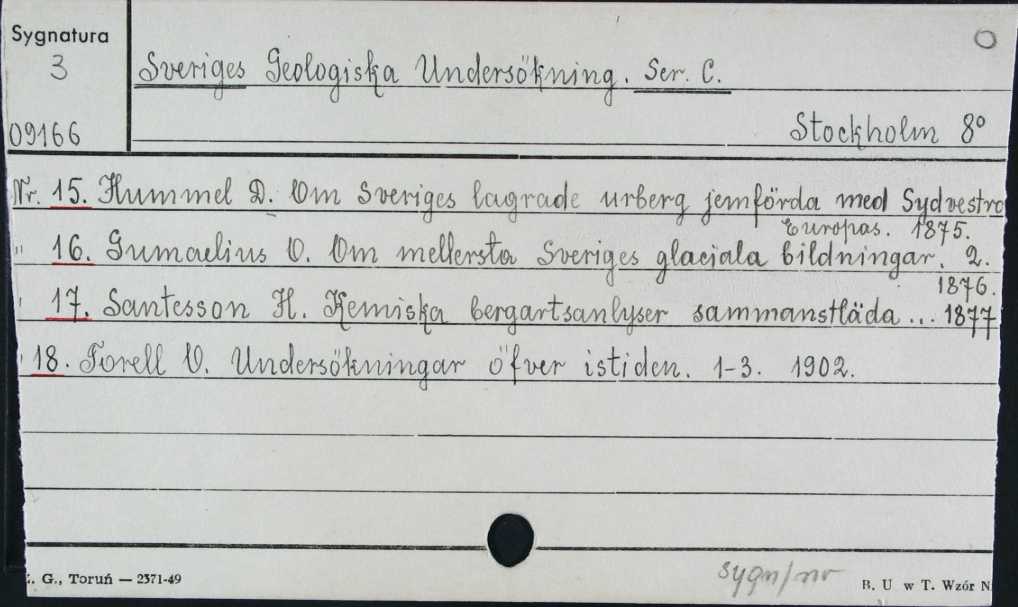 Sygnatura
3
09166
Sveriges Geologiska Undersökning. Ser. C.
Stockholm 8°
Nr. 15. Hummel D. Om Sveriges lagrade urberg jemförda med Sydvestra
Europas. 1875.
" 16. Gumaelius O. Om mellersta Sveriges glaciala bildningar. 2.
1876.
17. Santesson H. Kemiska bergartsanlyser sammanstläda ... 1877
18. Torell O. Undersökningar öfver istiden. 1-3. 1902.
. G., Toruń — 2371-49
sygn/nr
B. U w T. Wzór N